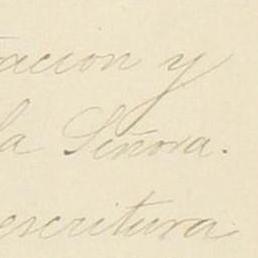 tacion y
la Señora.
escritura